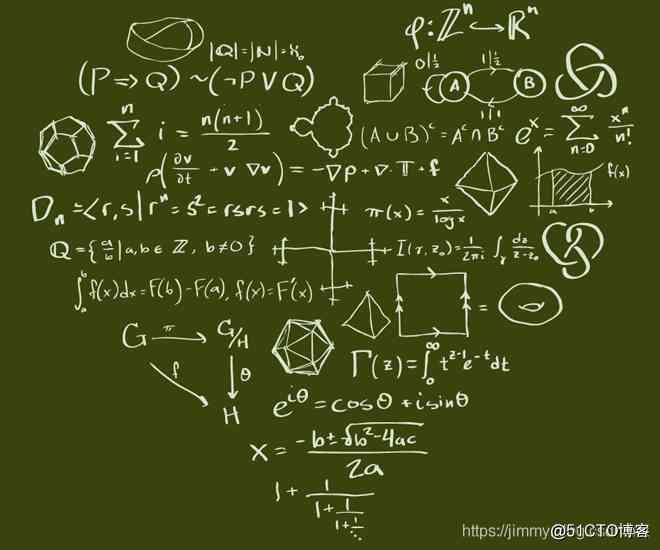 φ: ℤⁿ ↔ ℝⁿ
|ℚ|=|ℕ|=ℵ₀
(P ⇒ Q) ~ (¬P ∨ Q)
0|½ A 1|½ B
1|1
n
Σ i = n(n+1)/2
i=1
(A ∪ B)ᶜ = Aᶜ ∩ Bᶜ
eˣ = Σ xⁿ/n!
∞
n=0
ρ(∂v/∂t + v · ∇v) = -∇p + ∇ · 𝕋 + f
f(x)
a b
Dₙ = <r,s | rⁿ = s² = rsrs = 1>
π(x) = x/log x
ℚ = {a/b | a,b ∈ ℤ, b≠0}
I(γ, z₀) = 1/2πi ∫γ dz/z-z₀
∫ₐᵇ f(x)dx = F(b) - F(a), f(x) = F'(x)
=
G π G/H
Γ(z) = ∫₀^∞ t^(z-1) e^(-t) dt
f θ
H
e^(iθ) = cosθ + i sinθ
x = -b ± √b²-4ac / 2a
1 + 1/1+1/1+1/⋱
@51CTO博客